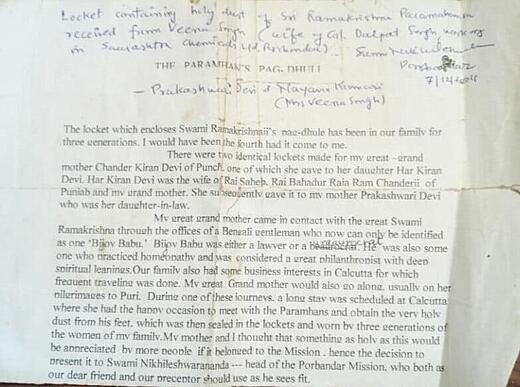 Locket containing holy dust of Sri Ramakrishna Paramahansa
received from Veena Singh (wife of Col. Dalpat Singh, working
in Saurashtra Chemicals Ltd, Porbandar)
Porbandar
7/12/2004
THE PARAMHAN'S PAG-DHULI
— Prakashwari Devi & Nayana Kumari
(Mrs Veena Singh)
The locket which encloses Swami Ramakrishnaii's pag-dhule has been in our family for
three generations. I would have been the fourth had it come to me.
There were two identical lockets made for my great -grand
mother Chander Kiran Devi of Punch, one of which she gave to her daughter Har Kiran
Devi. Har Kiran Devi was the wife of Rai Saheb, Rai Bahadur Raia Ram Chanderji of
Punjab and my grand mother. She subsequently gave it to my mother Prakashwari Devi
who was her daughter-in-law.
My great grand mother came in contact with the great Swami
Ramakrishna through the offices of a Bengali gentleman who now can only be identified
as one 'Bijoy Babu.' Bijoy Babu was either a lawyer or a He was also some
one who practiced homeopathy and was considered a great philanthropist with deep
spiritual leanings.Our family also had some business interests in Calcutta for which
frequent traveling was done. My great Grand mother would also go along, usually on her
pilgrimages to Puri. During one of these journeys, a long stay was scheduled at Calcutta,
where she had the happy occasion to meet with the Paramhans and obtain the very holy
dust from his feet, which was then sealed in the lockets and worn by three generations of
the women of my family.My mother and I thought that something as holy as this would
be appreciated by more people if it belonged to the Mission , hence the decision to
present it to Swami Nikhileshwarananda --- head of the Porbandar Mission, who both as
our dear friend and our preceptor should use as he sees fit.